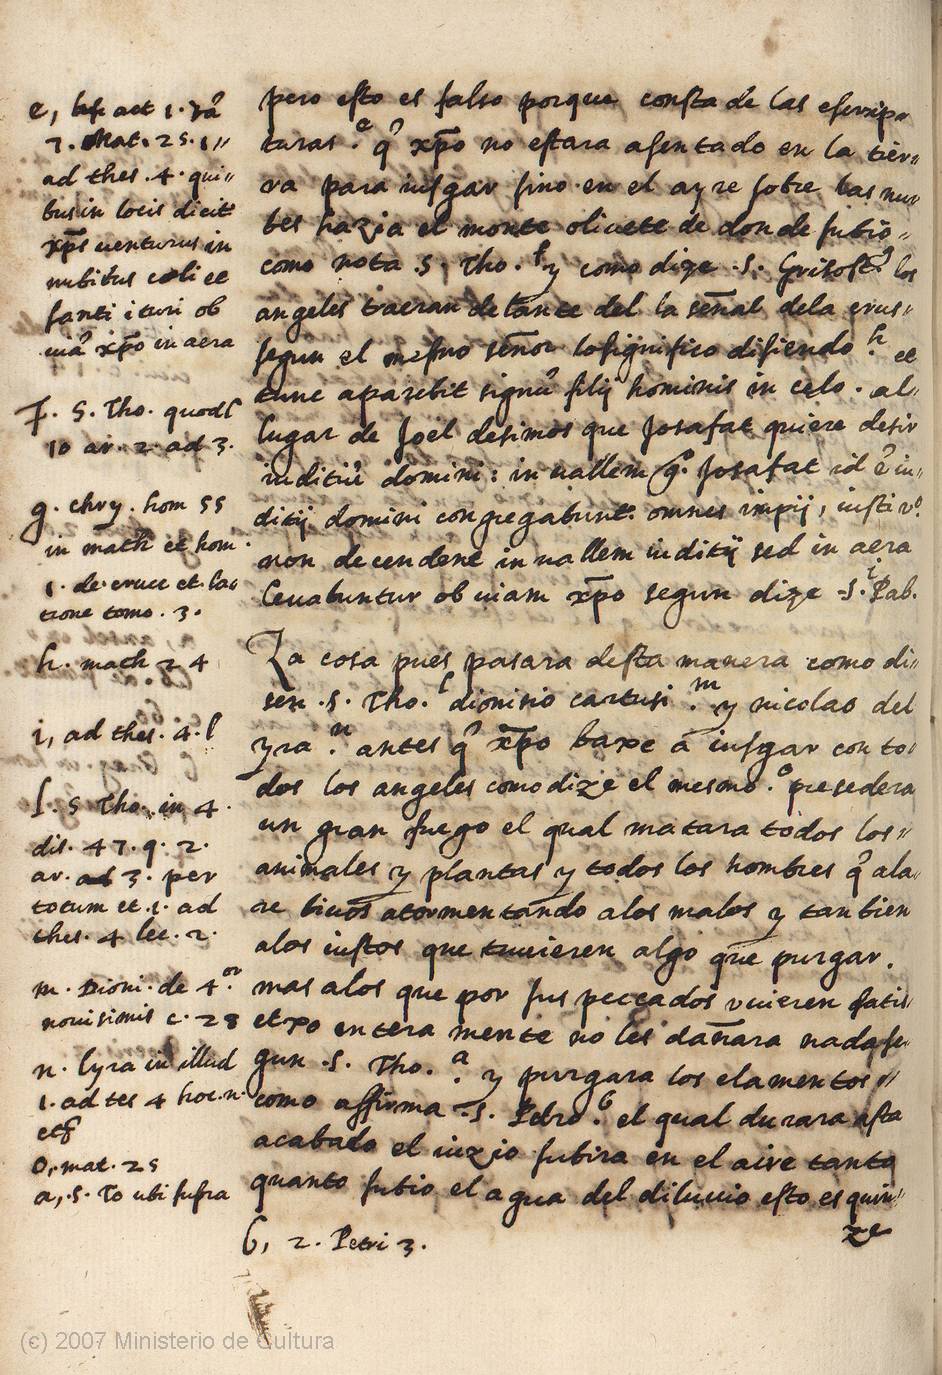 e, hꝭ act 1. 
7. Mat. 25. 1〃
ad thes. 4. qui〃
bus in locis dicit
xp̄s uenturus in
nubibus celi et
santi ituri ob
uiā xp̄o in aera
f. S. Tho. quodl
10 ar. 2. ad 3.
g. chry. hom 55
in math et hom.
1. de cruce et la
trone tomo. 3.
h. math 24
i, ad thes. 4. l
l. S Tho. in 4.
dis. 47. q. 2.
ar. 3. per
totum et. 1. ad
thes. 4 lec. 2.
m. Dioni. de 4.or
nouisimis c. 28
n. lyra in illud
1. ad tes 4 hoc. n.
o, mat. 25
a, S. To ubi supra
pero esto es falso porque consta de las escrip〃
turas.e q̄ xp̄o no estara asentado en la tier〃
ra para iusgar sino en el ayre sobre las nuu
bes hazia el monte oliuete de donde subio〃
como nota .S. Tho.f y como dize .S. Grisost.g los
angeles traeran delante del la señal dela crus〃
segun el mesmo señor lo significo disiendo.h et
tunc aparebit signū filij hominis in celo. al〃
lugar de Joel desimos que Josafat quiere desir
iuditiū domini: in uallem g̊. Josafat id ē iu〃
ditij domini congregabunt. omnes impij, iusti v̊.
non decendent in uallem iuditij sed in aera
leuabuntur obuiam xp̄o segun dize .S. Pab.i
La cosa pues pasara desta manera como di〃
sen .S. Tho.l dionisio cartusi.m y nicolao del
yra.n antes q̄ xp̄o baxe a iusgar con to〃
dos los angeles como dize el mesmo.o presedera
un gran fuego el qual matara todos los〃
animales y plantas y todos los hombres q̄ ala〃
re biuos atormentando alos malos y tanbien
alos iustos que tuuieren algo que purgar.
mas alos que por sus peccados vuieren satis〃
echo entera mente no les dañara nada se〃
gun .S. Tho.a y purgara los elamentos〃
como affirma .S. Pedro.b el qual durara asta
acabado el iuzio subira en el aire tanto
quanto subio el agua del diluuio esto es quin〃
ze
b, 2. Petri 3.
(c) 2007 Ministerio de Cultura